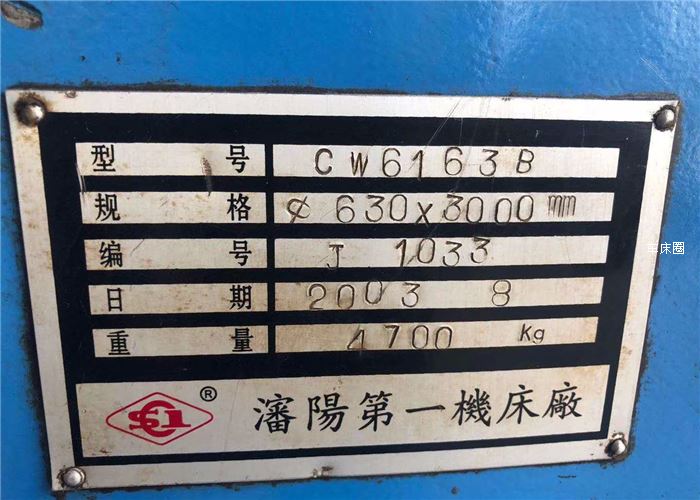 型号 CW6163B
规格 φ630x3000mm
编号 J 1033
日期 2003 8
重量 4700 Kg
S1 ® 瀋陽第一機床廠
车床圈